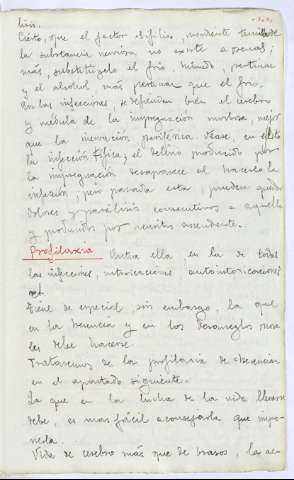 Cierto, que el factor sífilis, mordiente
la substancia nerviosa no existe apenas;
más, substitúyelo el frío, húmedo, pertinaz
y el alcohol más pertinaz que el frío.
En las infecciones, se defienden bien el cerebro
y médula de la impregnación morbosa, mejor
que la inervación periférica. Véase, en
la infección tífica; el delirio producido por
la impregnación desaparece al hacerlo la
infección; pero pasada esta, pueden quedar
dolores y parálisis consecutivos a aquella
y producidos por neuritis ascendente.
Profilaxia Entra ella en la de todas
las infecciones, intoxicaciones autointoxicaciones
Tiene de especial, sin embargo, la que
en la herencia y en los
les debe hacerse.
Trataremos de la profilaxia de
en el apartado siguiente.
La que en la lucha de la vida llevarse
debe, es mas fácil aconsejarla que imponerla.
Vida de cerebro más que de brazos, la ac-